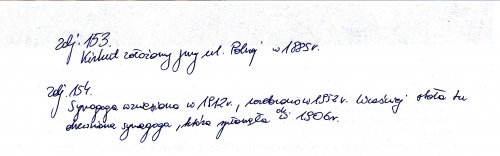 zdj. 153.
Kirkut założony przy ul. Polnej w 1885r.
zdj. 154.
Synagoga wzniesiona w 1912r., rozebrano w 1952r. Wcześniej stała tu
drewniana synagoga, która spłonęła 1906r.